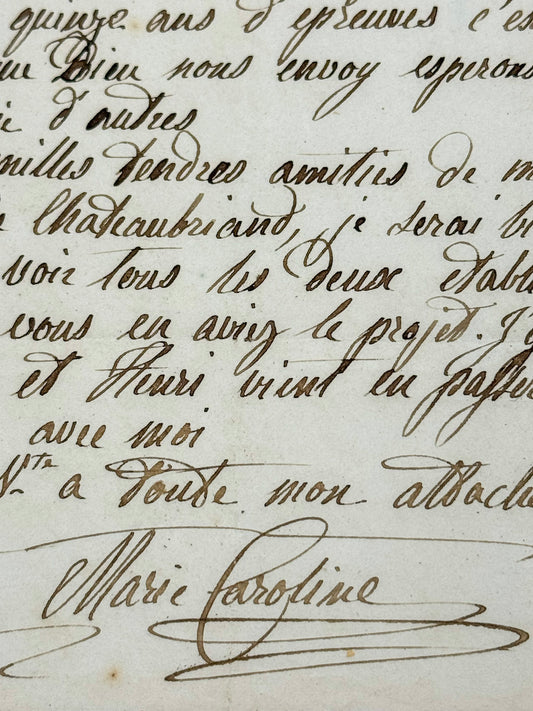 quinze ans d'epreuves c'es
Dieu nous envoy esperons
d'autres
milles tendres amities de m
Chateaubriand, je serai b
voir tous les deux etabl
vous en aviez le projet. J'
et Henri vient en passer
avec moi
Vte a toute mon attache
Marie Caroline